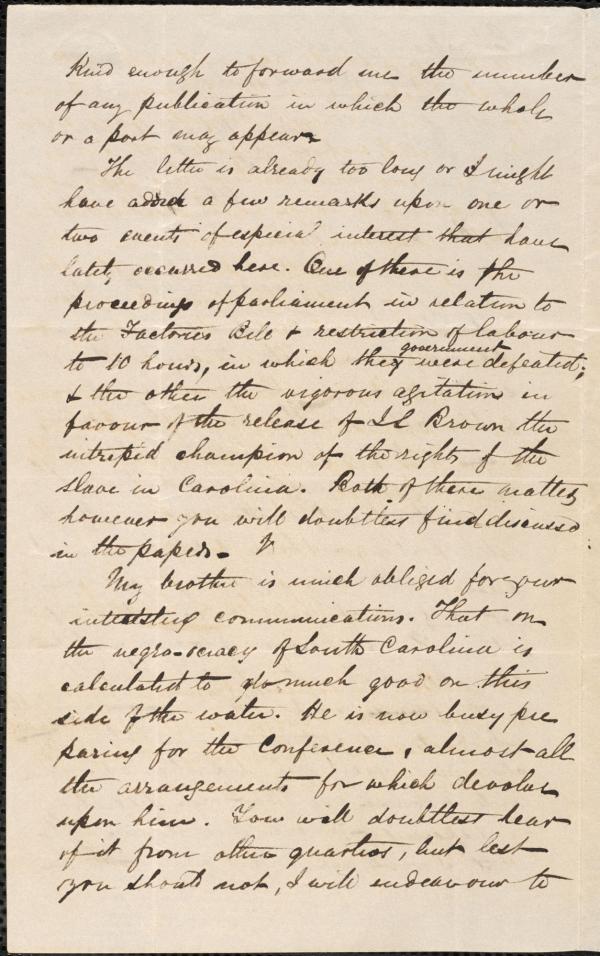 kind enough to forward me the number
of any publication in which the whole
or a part may appear.
The letter is already too long or I might
have added a few remarks upon one or
two events of especial interest that have
lately occurred here. One of these is the
proceedings of parliament in relation to
the Factories Bill & restriction of labour
to 10 hours, in which they government were defeated;
& the other the vigorous agitation in
favour of the release of J L Brown the
intrepid champion of the rights of the
slave in Carolina. Both of these matters
however you will doubtless find discussed
in the papers.
My brother is much obliged for your
interesting communications. That on
the negro-ocracy of South Carolina is
calculated to do much good on this
side of the water. He is now busy pre
paring for the Conference, almost all
the arrangements for which devolve
upon him. You will doubtless hear
of it from other quarters, but lest
you should not, I will endeavour to